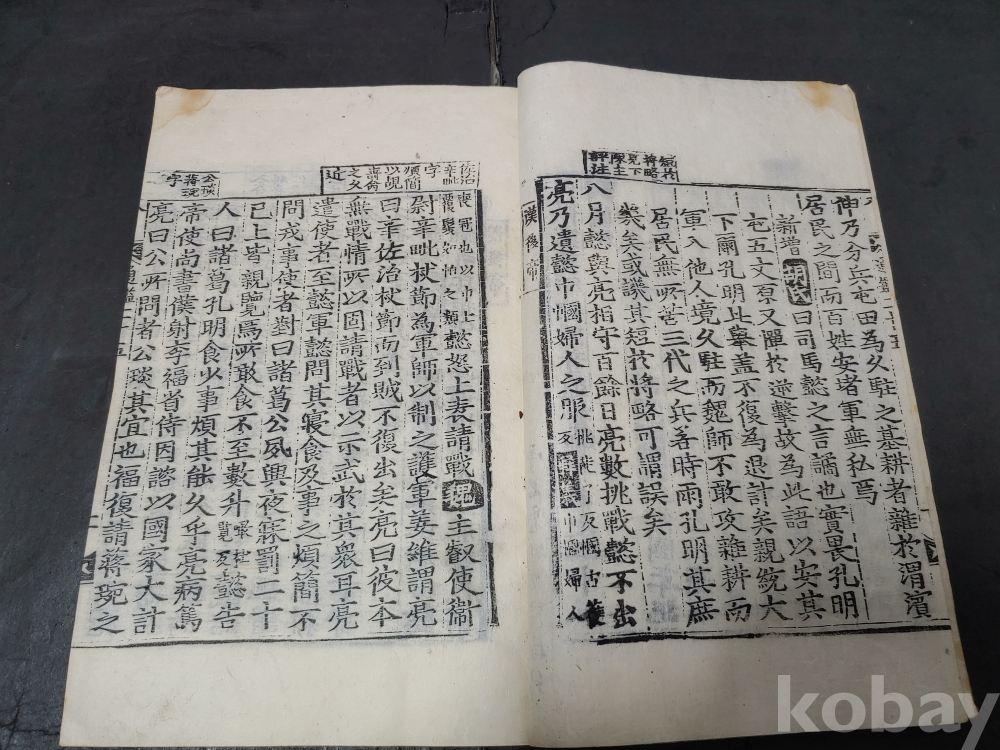 伸乃分兵屯田為久駐之基耕者雜於渭濱
居民之間而百姓安堵軍無私焉
新增胡氏曰司馬懿之言譎也實畏孔明
屯五丈原又單於逆擊故為此語以安其
下爾孔明此擧盖不復為退計矣親統大
軍入他人境久駐而魏師不敢攻雜耕而
居民無所苦三代之兵若時雨孔明其庶
幾矣或譏其短於將略可謂誤矣
八月懿與亮相守百餘日亮數挑戰懿不出
亮乃遺懿巾幗婦人之服
漢後帝
評註
喪冠也以巾上
懿怒上表請戰魏主叡使衛
尉辛毗杖節為軍師以制之護軍姜維謂亮
曰辛佐治杖節而到賊不復出矣亮曰彼本
無戰情所以固請戰者以示武於其衆耳亮
遣使者至懿軍懿問其寢食及事之煩簡不
問戎事使者對曰諸葛公夙興夜寐罰二十
已上皆親覽焉所敢食不至數升懿告
人曰諸葛孔明食少事煩其能久乎亮病篤
帝使尚書僕射李福省侍因諮以國家大計
亮曰公所問者公琰其宜也福復請蔣琬之
佐治
辛毗
字
煩簡
以覘
壽命
之久
近
公琰
蔣琬
字
kobay